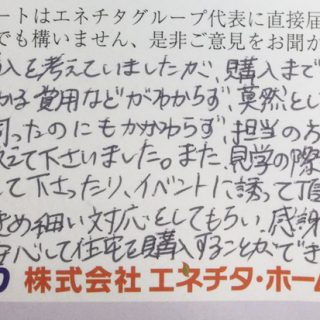 ートはエネチタグループ代表に直接届
でも構いません、是非ご意見をお聞か
入を考えていましたが、購入まで
かる費用などがわからず、莫然とし
伺ったのにもかかわらず、担当のお
教えて下さいました。また、見学の際
して下さったり、イベントに誘って頂
きめ細い対応としてもらい、感謝
安心して住宅を購入することができ
株式会社 エネチタ・ホーム